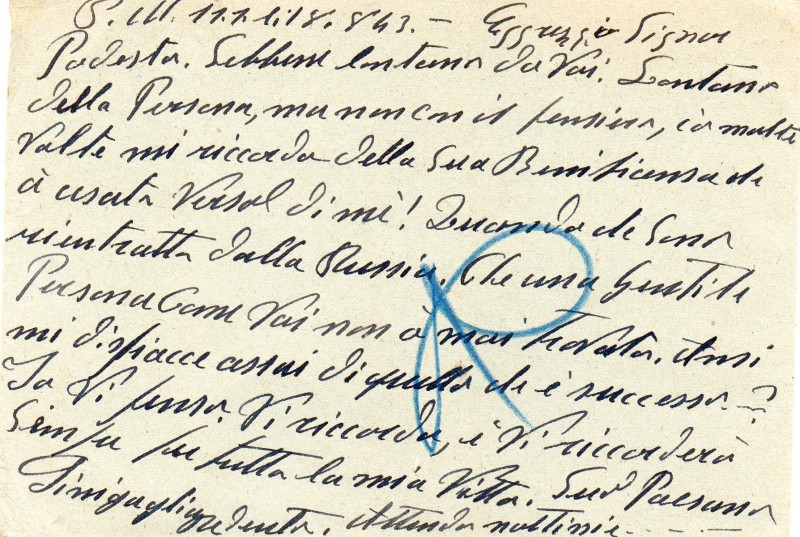 P. M. 11.7.li.18.843. - Eggreggio Signor
Podesta. Sebbene lontano da Voi. Lontano
della Persona, ma non con il pensiero, io molte
Volte mi riccordo della Sua Benificensa che
à usato Verso di mé! Quando che sono
rientratto dalla Russia. Che una Gentile
Persona Come Voi non ò mai trovato. Ansi
mi dispiacce assai di quello che è successo. - ?
Io Vi penso Vi riccordo, e Vi riccorderò
Sempre per tutta la mia Vitta. Suo Paesano
Sinigaglia. Attendo nottissie - - - -